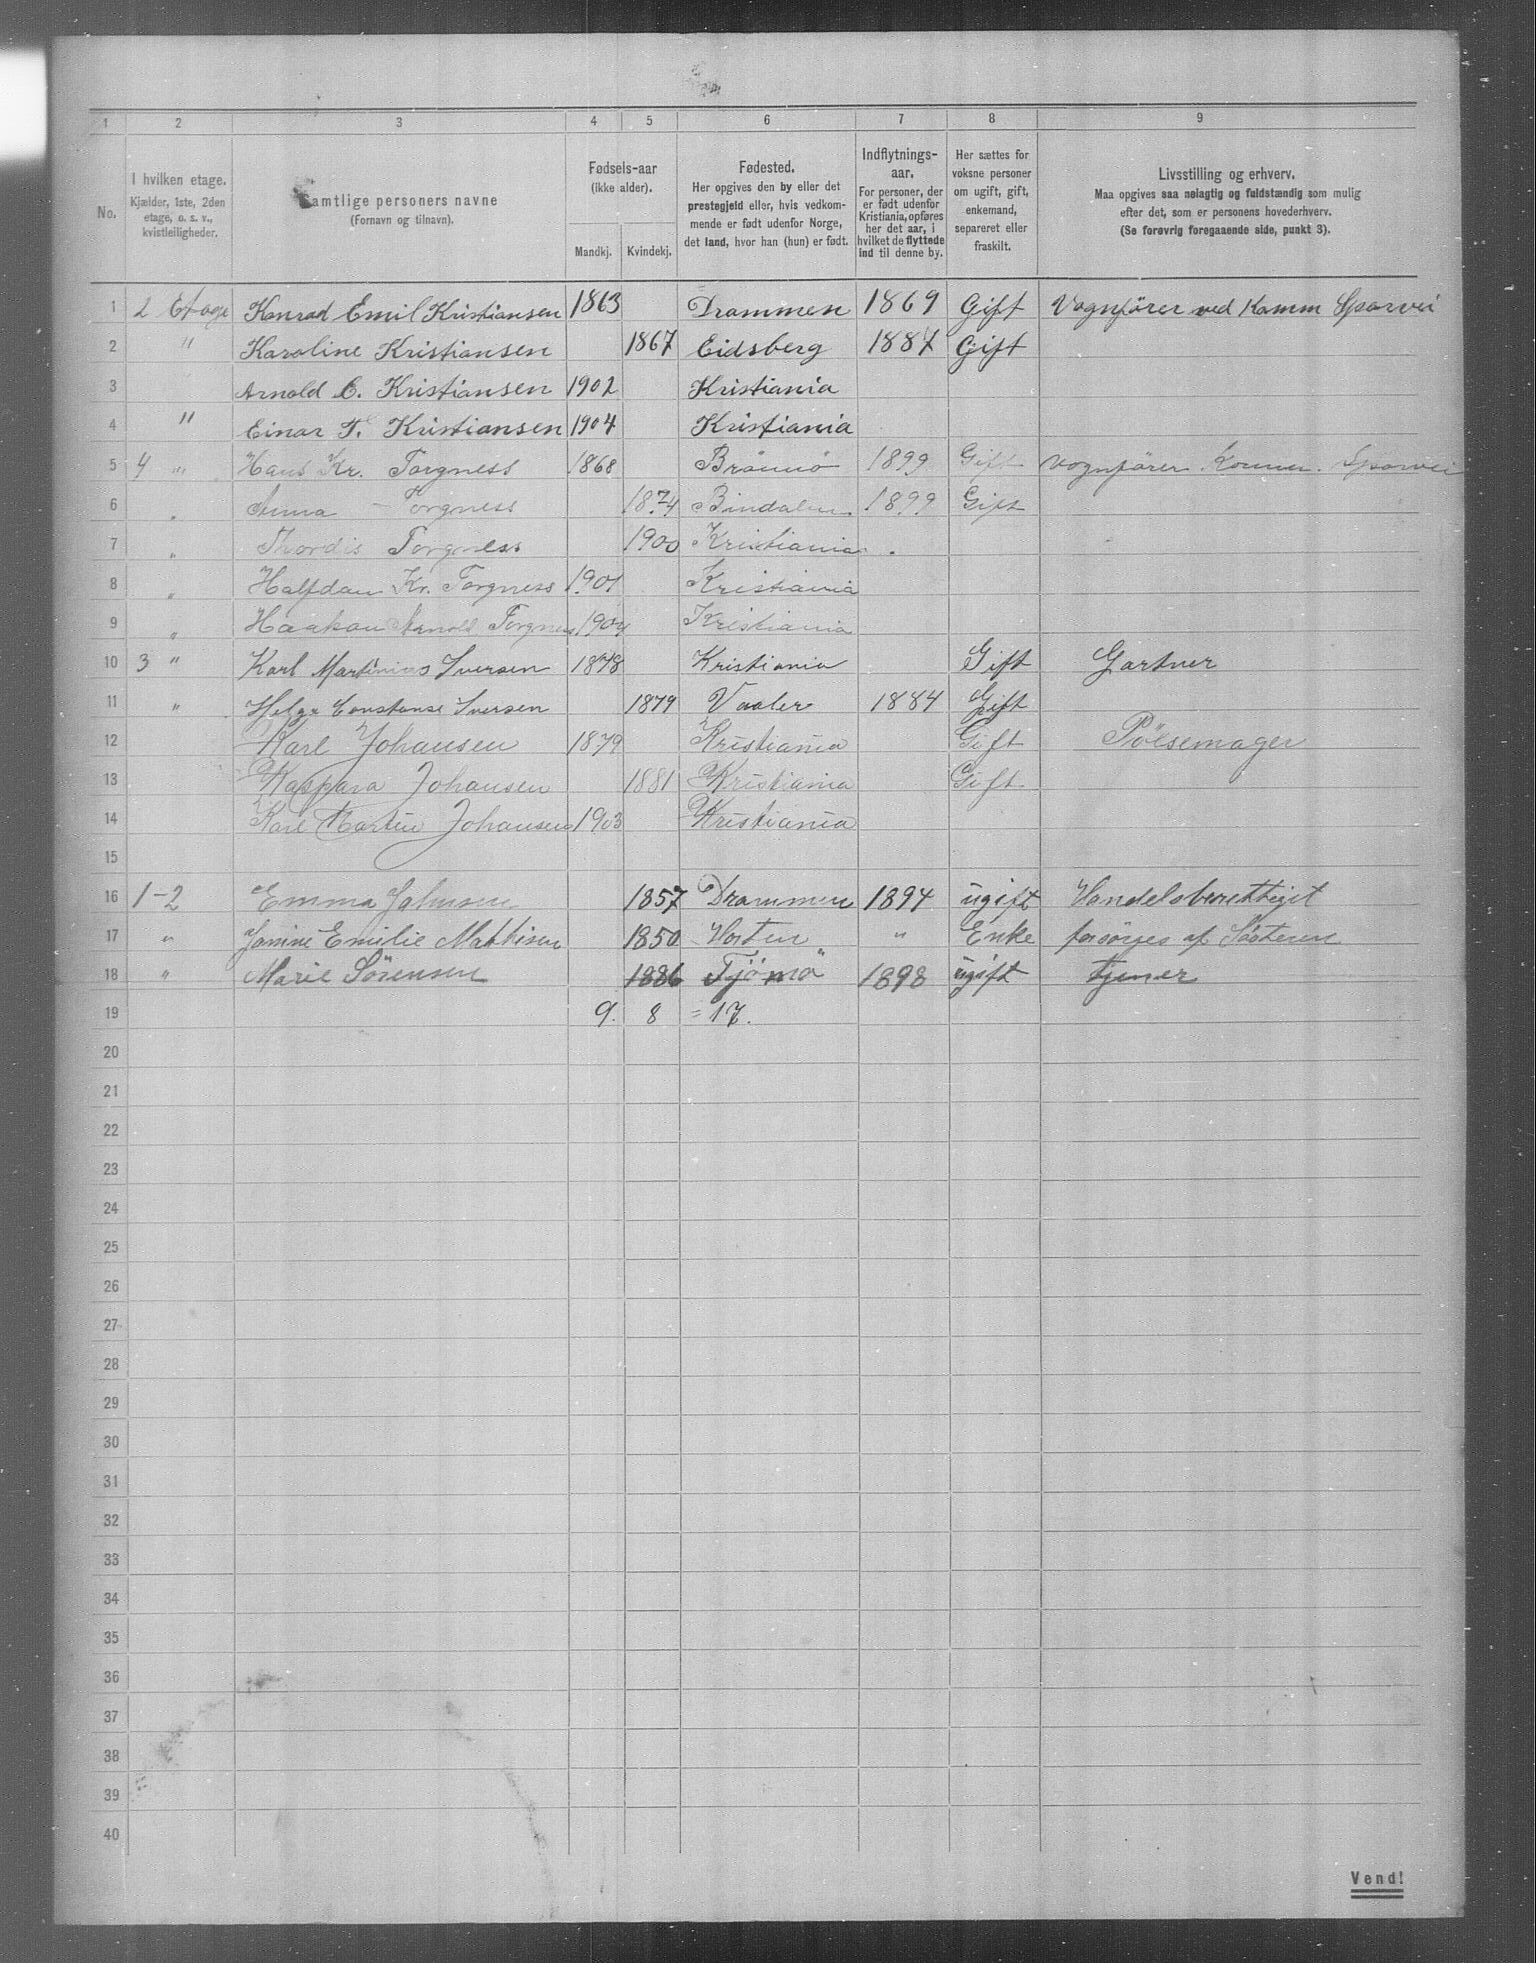 1 2 3 4 5 6 7 8 9
No. I hvilken etage. Kjælder, 1ste, 2den etage, o. s. v., kvistleiligheder. Samtlige personers navne (Fornavn og tilnavn). Fødsels-aar (ikke alder). Mandkj. Kvindekj. Fødested. Her opgives den by eller det prestegjeld eller, hvis vedkommende er født udenfor Norge, det land, hvor han (hun) er født. Indflytnings-aar. For personer, der er født udenfor Kristiania, opføres her det aar, i hvilket de flyttede ind til denne by. Her sættes for voksne personer om ugift, gift, enkemand, separeret eller fraskilt. Livsstilling og erhverv. Maa opgives saa nøiagtig og fuldstændig som mulig efter det, som er personens hovederhverv. (Se forøvrig foregaaende side, punkt 3).
1 2 Etage Konrad Emil Kristiansen 1863 Drammen 1869 Gift Vognfører ved Komm Sporvei
2 " Karoline Kristiansen 1867 Eidsberg 1887 Gift
3 Arnold C. Kristiansen 1902 Kristiania
4 " Einar T. Kristiansen 1904 Kristiania
5 4 " Hans Kr. Torgness 1868 Brønnø 1899 Gift Vognfører Komm. Sporvei
6 " Anna Torgness 1874 Bindalen 1899 Gift
7 " Thordis Torgness 1900 Kristiania
8 " Halfdan Kr. Torgness 1901 Kristiania
9 " Haakon Arnold Torgness 1904 Kristiania
10 3 " Karl Martinius Iversen 1878 Kristiania Gift Gartner
11 " Helga Constanse Iversen 1879 Vaaler 1884 Gift
12 Karl Johansen 1879 Kristiania Gift Pölsemager
13 Kaspara Johansen 1881 Kristiania Gift
14 Karl Martin Johansen 1903 Kristiania
15
16 1-2 Emma Johnsen 1857 Drammen 1894 ugift Handelsberettiget
17 " Janine Emilie Mathisen 1850 Horten " Enke forsörges af Sösteren
18 " Marie Sörensen 1886 Tjömö 1898 ugift tjener
19 9. 8 = 17.
20
21
22
23
24
25
26
27
28
29
30
31
32
33
34
35
36
37
38
39
40
Vend!